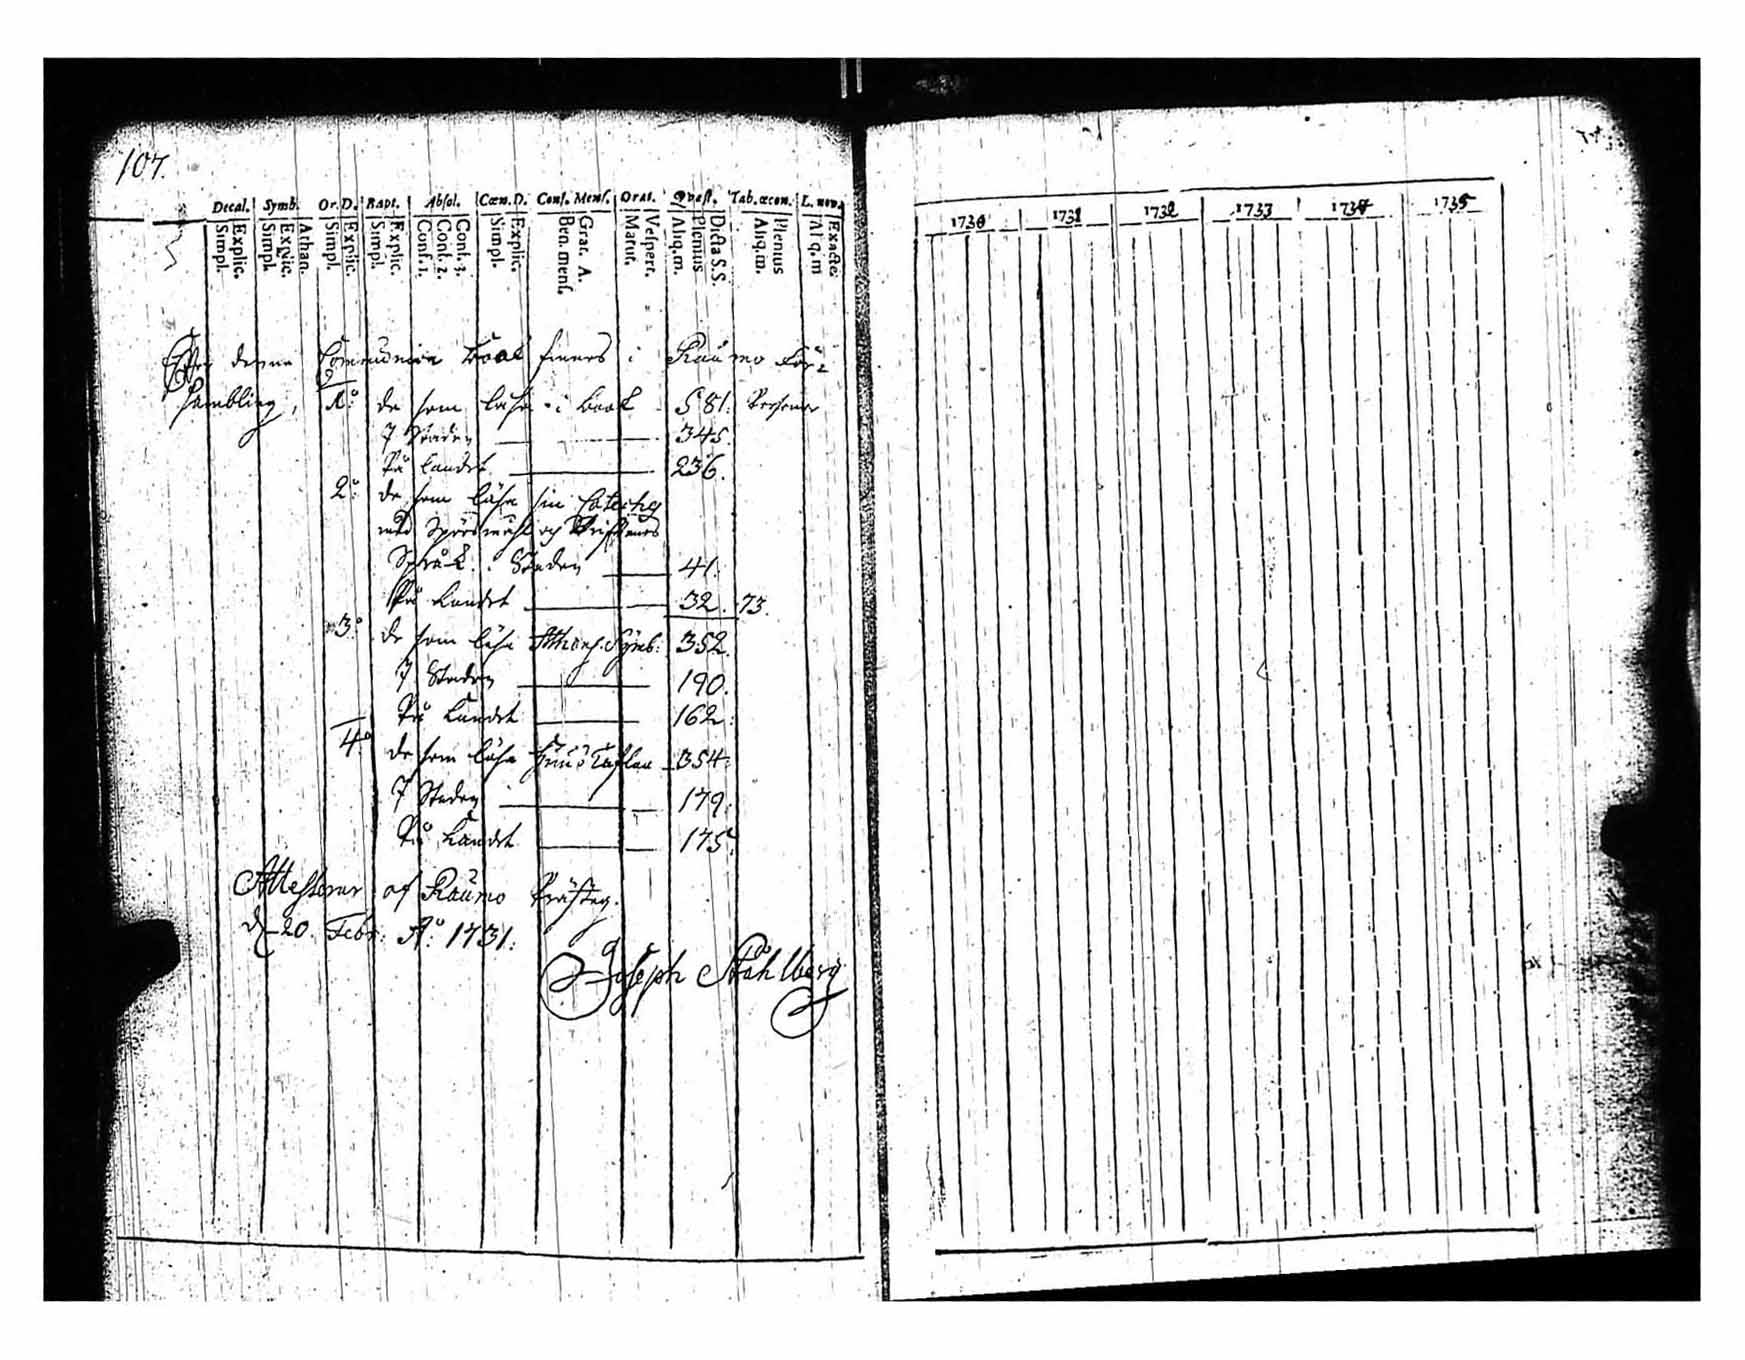 107.
Decal. Symb. Or. D. Bapt. Absol. Cœn. D. Conf. Mens. Orat. Qvæst. Tab. œcon. L. nov.
Explic. Simpl. Athan. Explic. Simpl. Explic. Simpl. Explic. Simpl. Conf. 3. Conf. 2. Conf. 1. Explic. Simpl. Grat. A. Ben. mens. Vespert. Matut. Dicta S.S. Plenius Aliq.m. Plenius Aliq.m. Exactè Aliq.m
Efter denna Communion Book finnes i Raumo För-
sambling, 1:o de som läsa i Book 581. Personer
I Staden 345.
På Landet 236.
2:o de som läsa sin Cateches
med Spörsmåhl och Skriftenes
Språk. i Staden 41.
På Landet 32. 73.
3:o de som läsa Athanas. Symb: 352.
I Staden 190.
På Landet 162.
4:o de som läsa Huus Taflan 354.
I Staden 179.
På Landet 175.
Attesterar af Raumo Prästeg.
d. 20. Febr: A:o 1731.
Joseph Ståhlberg
1730 1731 1732 1733 1734 1735